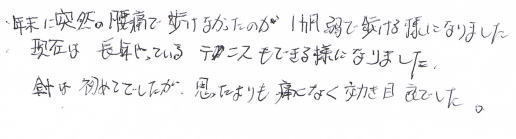 年末に突然の腰痛で歩けなかったのが 1ヵ月弱で歩ける様になりました
現在は 長年やっている テニスもできる様になりました.
針は 初めてでしたが 思ったよりも 痛くなく 効き目 良でした。